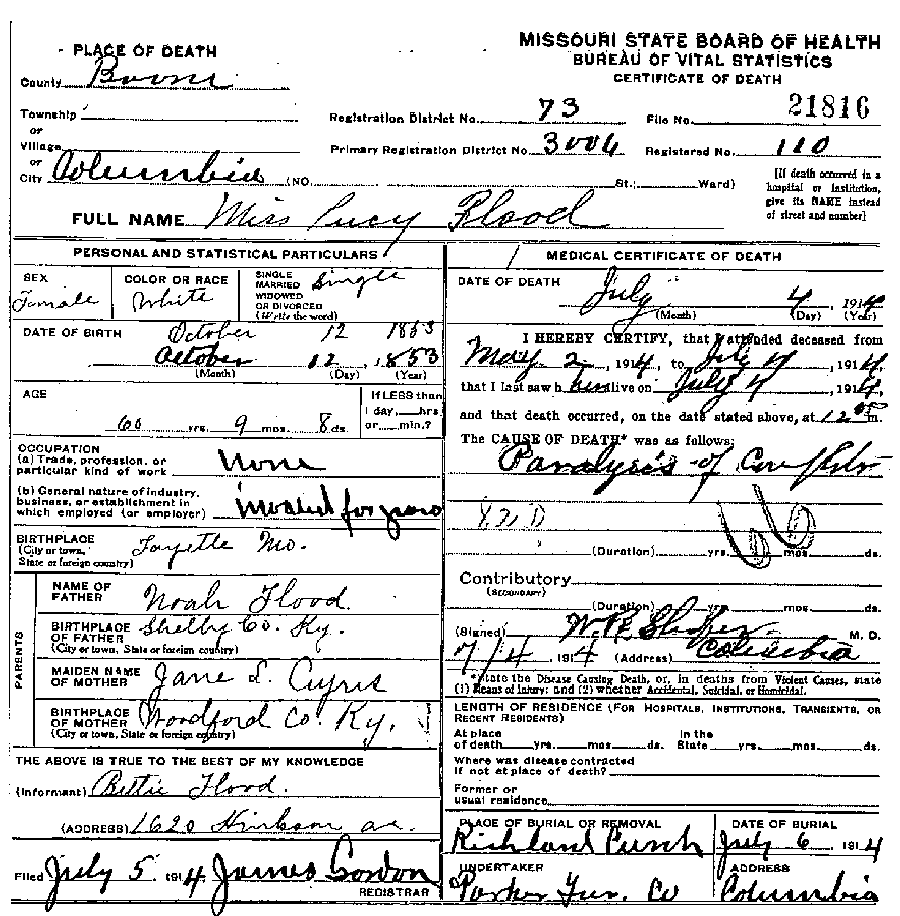 MISSOURI STATE BOARD OF HEALTH
BUREAU OF VITAL STATISTICS
CERTIFICATE OF DEATH
PLACE OF DEATH
County Boone
Township
or
Village
or
City Columbia (NO. St.; Ward)
Registration District No. 73 File No. 21816
Primary Registration District No. 3006 Registered No. 110
[If death occurred in a
hospital or institution,
give its NAME instead
of street and number]
FULL NAME Miss Lucy Flood
PERSONAL AND STATISTICAL PARTICULARS
SEX
Female
COLOR OR RACE
White
SINGLE
MARRIED
WIDOWED
OR DIVORCED
(Write the word)
Single
DATE OF BIRTH October 12 1853
October 12, 1853
(Month) (Day) (Year)
AGE
60 yrs. 9 mos. 8 ds.
If LESS than
1 day, hrs.
or min.?
OCCUPATION
(a) Trade, profession, or
particular kind of work None
(b) General nature of industry,
business, or establishment in
which employed (or employer) invalid for years
BIRTHPLACE
(City or town,
State or foreign country) Fayette Mo.
PARENTS
NAME OF
FATHER Noah Flood.
BIRTHPLACE
OF FATHER Shelby Co. Ky.
(City or town, State or foreign country)
MAIDEN NAME
OF MOTHER Jane L.
BIRTHPLACE
OF MOTHER Woodford Co. Ky.
(City or town, State or foreign country)
THE ABOVE IS TRUE TO THE BEST OF MY KNOWLEDGE
(Informant) Bettie Flood.
(ADDRESS) 1620 Hinkson av.
Filed July 5 1914 James Gordon
REGISTRAR
MEDICAL CERTIFICATE OF DEATH
DATE OF DEATH
July 4, 1914
(Month) (Day) (Year)
I HEREBY CERTIFY, that I attended deceased from
May 2, 1914, to July 4, 1914,
that I last saw her alive on July 4, 1914,
and that death occurred, on the date stated above, at 12 m.
The CAUSE OF DEATH* was as follows:
Paralysis of
82 D
66
(Duration) yrs. mos. ds.
Contributory
(SECONDARY)
(Duration) yrs. mos. ds.
(Signed) M. D.
7/4 1914 (Address) Columbia
*State the Disease Causing Death, or, in deaths from Violent Causes, state
(1) Means of Injury; and (2) whether Accidental, Suicidal, or Homicidal.
LENGTH OF RESIDENCE (FOR HOSPITALS, INSTITUTIONS, TRANSIENTS, OR
RECENT RESIDENTS)
At place In the
of death yrs. mos. ds. State yrs. mos. ds.
Where was disease contracted
if not at place of death?
Former or
usual residence
PLACE OF BURIAL OR REMOVAL
Richland
DATE OF BURIAL
July 6 1914
UNDERTAKER
Parker Fur. Co
ADDRESS
Columbia